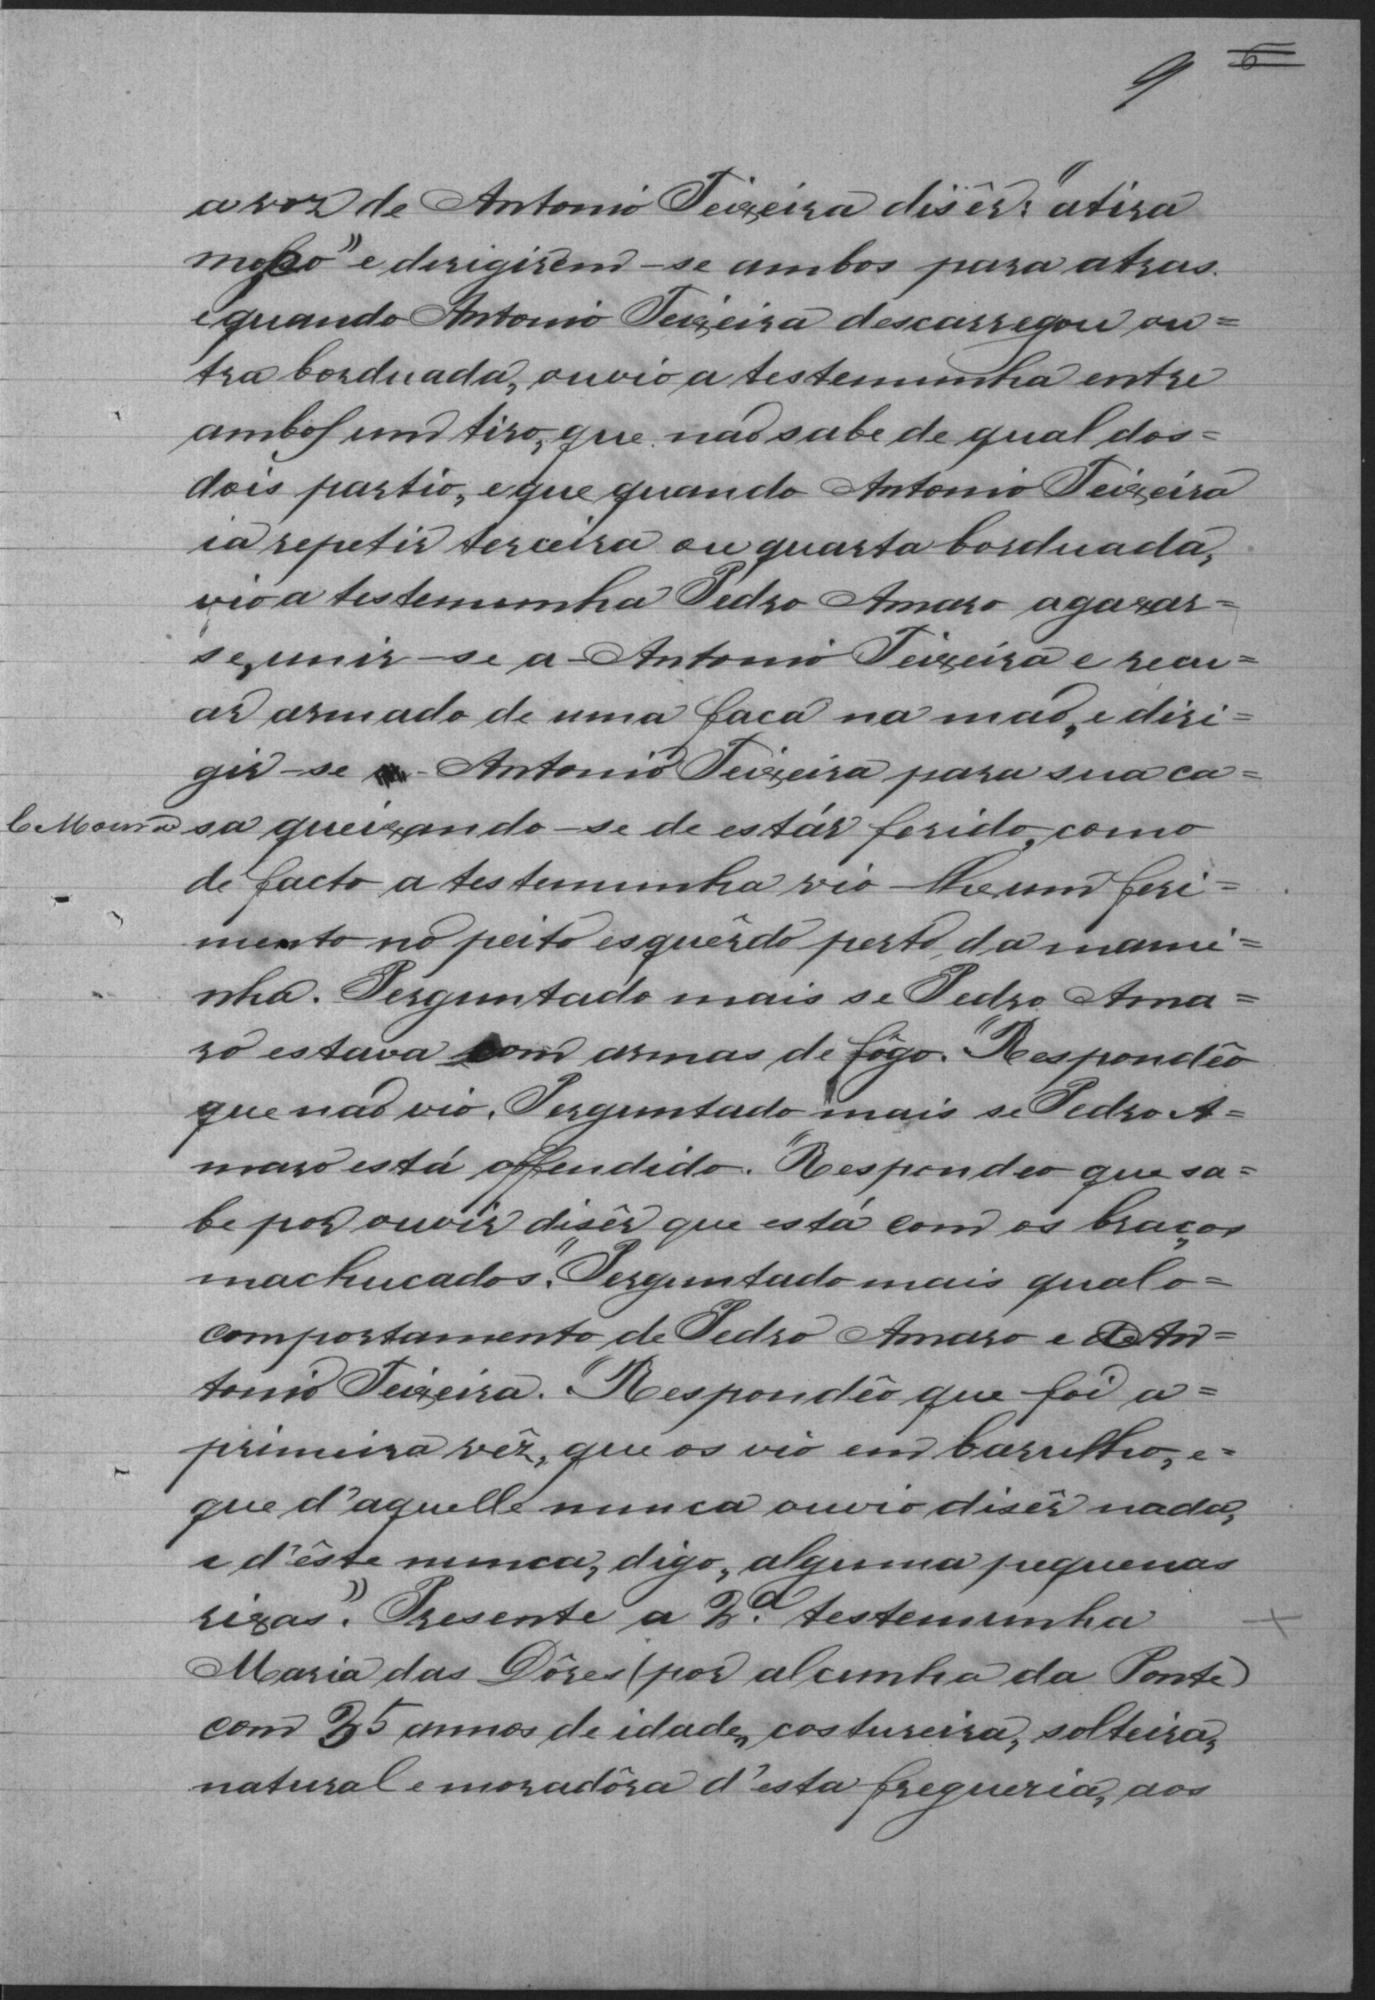 9 6
a voz de Antonio Teixeira disêr: "atira
moço" e dirigirem-se ambos para atras.
e quando Antonio Teixeira descarregou ou=
tra borduada, ouvio a testemunha entre
ambos um tiro, que não sabe de qual dos=
dois partio, e que quando Antonio Teixeira
ia repetir terceira ou quarta borduada,
vio a testemunha Pedro Amaro agaxar=
se, unir-se a Antonio Teixeira e recu=
ar armado de uma faca na mão, e diri=
gir-se Antonio Teixeira para sua ca=
C Moura
sa queixando-se de estár ferido, como
de facto a testemunha vio-lhe um feri=
mento no peito esquêrdo perto da mami=
nha. Perguntado mais se Pedro Ama=
ro estava com armas de fôgo. "Respondêo
que não vio. Perguntado mais se Pedro A=
maro está offendido. "Respondeo que sa=
be por ouvir disêr que está com os braços
machucados". Perguntado mais qual o=
comportamento de Pedro Amaro e de An=
tonio Teixeira. "Respondêo que foi a=
primeira vêz, que os vio em barulho, e=
que d'aquelle nunca ouvio disêr nada,
e d'êste nunca, digo, alguma pequenas
rixas". Presente a 2ª. testemunha
Maria das Dôres (por alcunha da Ponte)
com 35 annos de idade, costureira, solteira,
natural e moradôra d'esta fregueria, aos